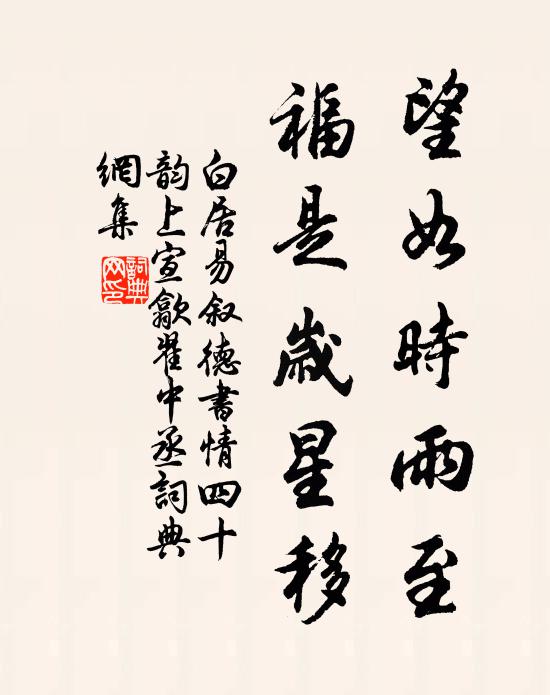 望如時雨至
福是歲星移
白居易叙德書情四十
韵上宣歙翟中丞詞典
網集
詞典
网印